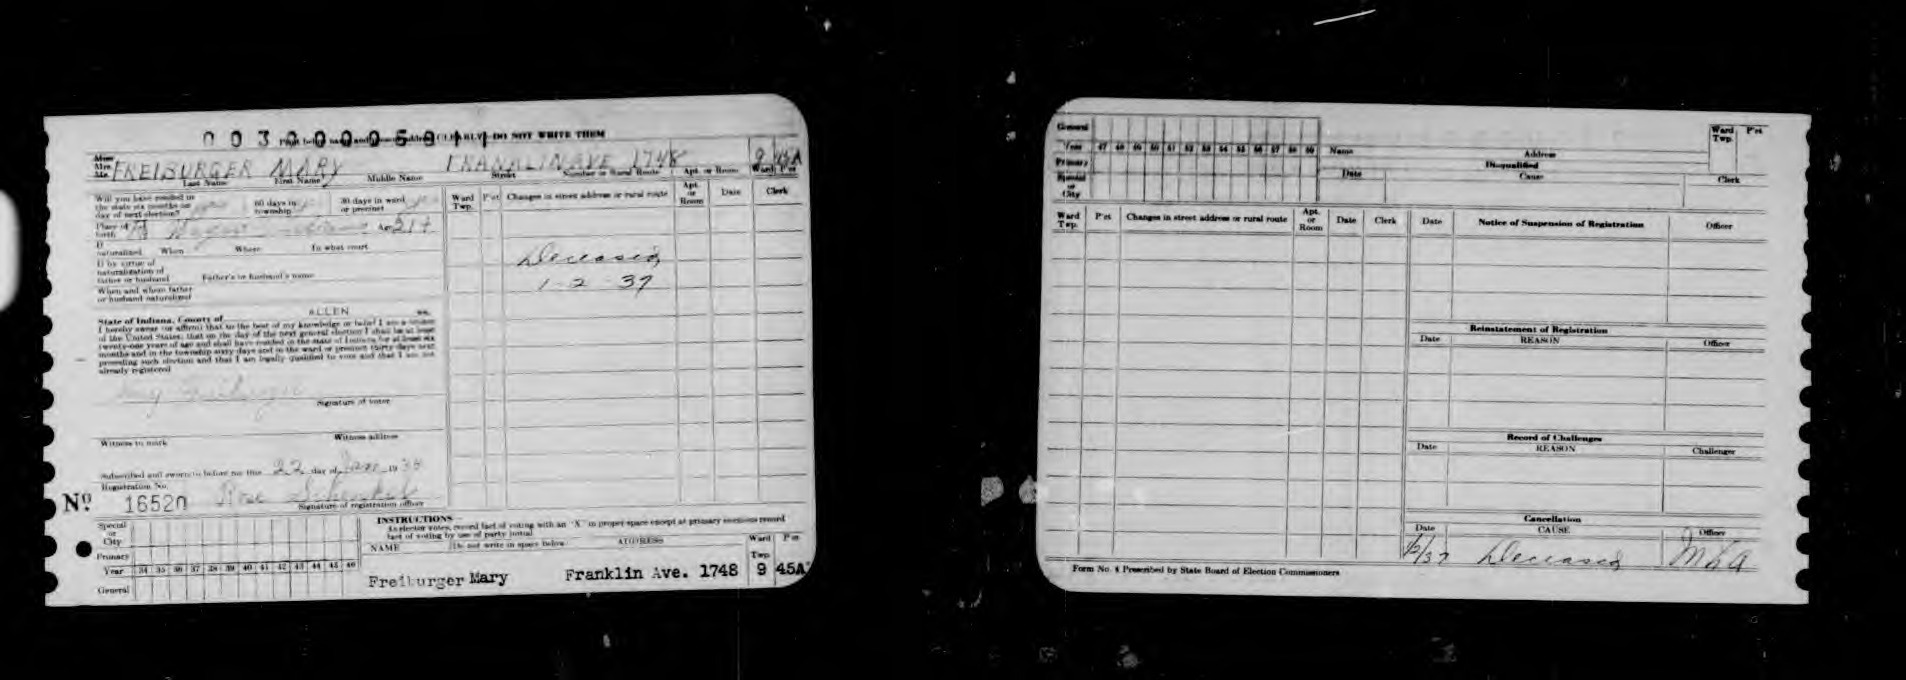 0 0 3 0 0 0 0 5 9 1 1
DO NOT WRITE THEM
Miss
Mrs.
Mr.
FREIBURGER MARY FRANKLIN AVE 1748 9 45A
Last Name First Name Middle Name Street Number or Rural Route Apt. or Room Ward P'ct
Will you have resided in
the state six months on
day of next election?
60 days in
township
30 days in ward
or precinct
Place of
birth
Age 21+
If
naturalized When Where In what court
If by virtue of
naturalization of
father or husband Father's or husband's name
When and where father
or husband naturalized
State of Indiana, County of ALLEN ss.
I hereby swear (or affirm) that to the best of my knowledge or belief I am a citizen
of the United States; that on the day of the next general election I shall be at least
twenty-one years of age and shall have resided in the state of Indiana for at least six
months and in the township sixty days and in the ward or precinct thirty days next
preceding such election and that I am legally qualified to vote and that I am not
already registered
Mary Freiburger
Signature of voter
Witness to mark Witness address
Subscribed and sworn to before me this 22 day of 19
Registration No.
Nº 16520 Rose
Signature of registration officer
Ward
Twp. P'ct Changes in street address or rural route Apt.
or
Room Date Clerk
Deceased
1-2-37
Special
or
City
Primary
Year 34 35 36 37 38 39 40 41 42 43 44 45 46
General
INSTRUCTIONS
As elector votes, record fact of voting with an "X" in proper space except at primary elections record
fact of voting by use of party initial
NAME Do not write in space below ADDRESS Ward
Twp. P'ct
Freiburger Mary Franklin Ave. 1748 9 45A
General
Year 47 48 49 50 51 52 53 54 55 56 57 58 59
Primary
Special
or
City
Name Address Ward
Twp. P'ct
Disqualified
Date Cause Clerk
Ward
Twp. P'ct Changes in street address or rural route Apt.
or
Room Date Clerk
Date Notice of Suspension of Registration Officer
Reinstatement of Registration
Date REASON Officer
Record of Challenges
Date REASON Challenger
Cancellation
Date CAUSE Officer
1/2/37 Deceased
Form No. 8 Prescribed by State Board of Election Commissioners